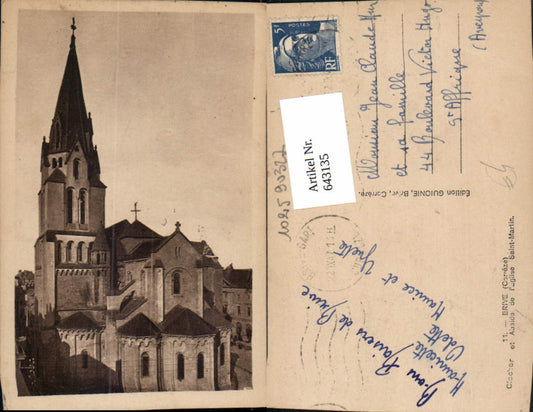 5F
POSTES
RF
Artikel Nr.
643135
Monsieur Jean Claude
et sa famille
44 Boulevard Victor Hugo
St Affrique
(Aveyron)
Édition GUIONIE, Brive, Corrèze.
11. — BRIVE (Corrèze)
Clocher et Abside de l'Église Saint-Martin.
Bons Baisers de Brive
Mauricette
Odette
Maurice et Yvette